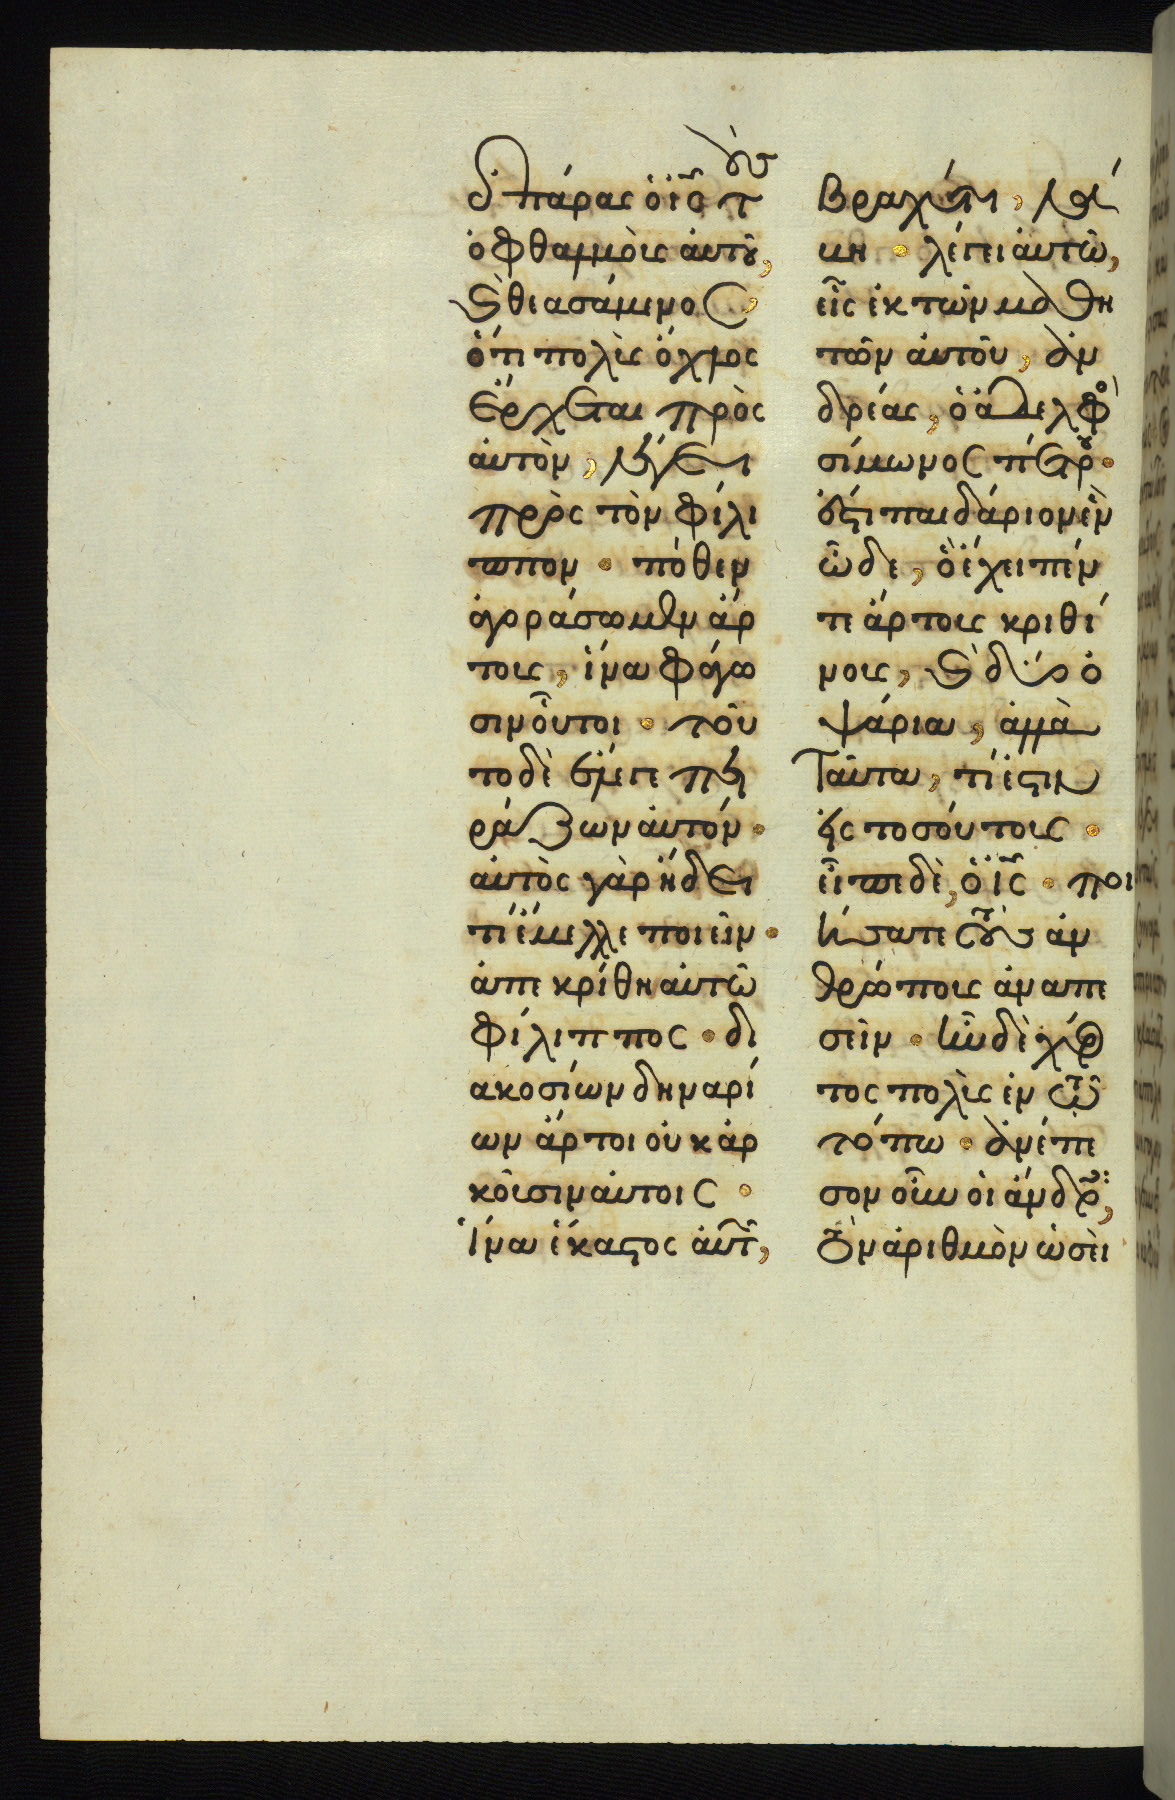 ἐπάρας ὁ ἰς τοὺς
ὀφθαλμοὺς αὐτοῦ,
καὶ θεασάμενος,
ὅτι πολὺς ὄχλος
ἔρχεται πρὸς
αὐτὸν, λέγει
πρὸς τὸν φίλι
ππον · πόθεν
ἀγοράσωμεν ἄρ
τους, ἵνα φάγω
σιν οὗτοι · τοῦ
το δὲ ἔλεγε πει
ράζων αὐτόν ·
αὐτὸς γὰρ ἤδει
τί ἔμελλε ποιεῖν ·
ἀπεκρίθη αὐτῶ
φίλιππος · δι
ακοσίων δηναρί
ων ἄρτοι οὐκ ἀρ
κοῦσιν αὐτοῖς ·
ἵνα ἕκαστος αὐτῶν,
βραχύ τι, λά
βη · λέγει αὐτῶ,
εἷς ἐκ τῶν μαθη
τῶν αὐτοῦ, ἀν
δρέας, ὁ ἀδελφὸς
σίμωνος πέτρου ·
ἔστι παιδάριον ἓν
ὧδε, ὃ ἔχει πέν
τε ἄρτους κριθί
νους, καὶ δύο ὀ
ψάρια, ἀλλὰ
ταῦτα, τί ἐστιν
εἰς τοσούτους ·
εἶπε δὲ, ὁ ἰς · ποι
ήσατε τοὺς ἀν
θρώπους ἀναπε
σεῖν · ἦν δὲ χόρ
τος πολὺς ἐν τῶ
τόπω · ἀνέπε
σον οὖν οἱ ἄνδρες,
τὸν ἀριθμὸν ὡσεὶ